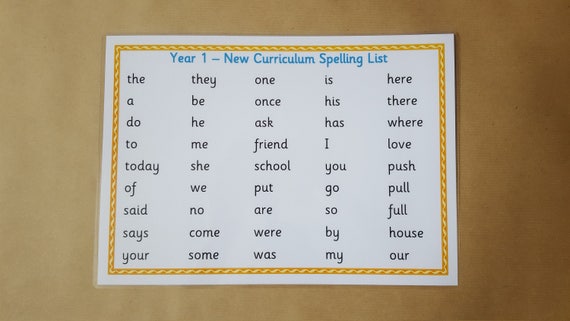 Year 1 – New Curriculum Spelling List
the they one is here
a be once his there
do he ask has where
to me friend I love
today she school you push
of we put go pull
said no are so full
says come were by house
your some was my our